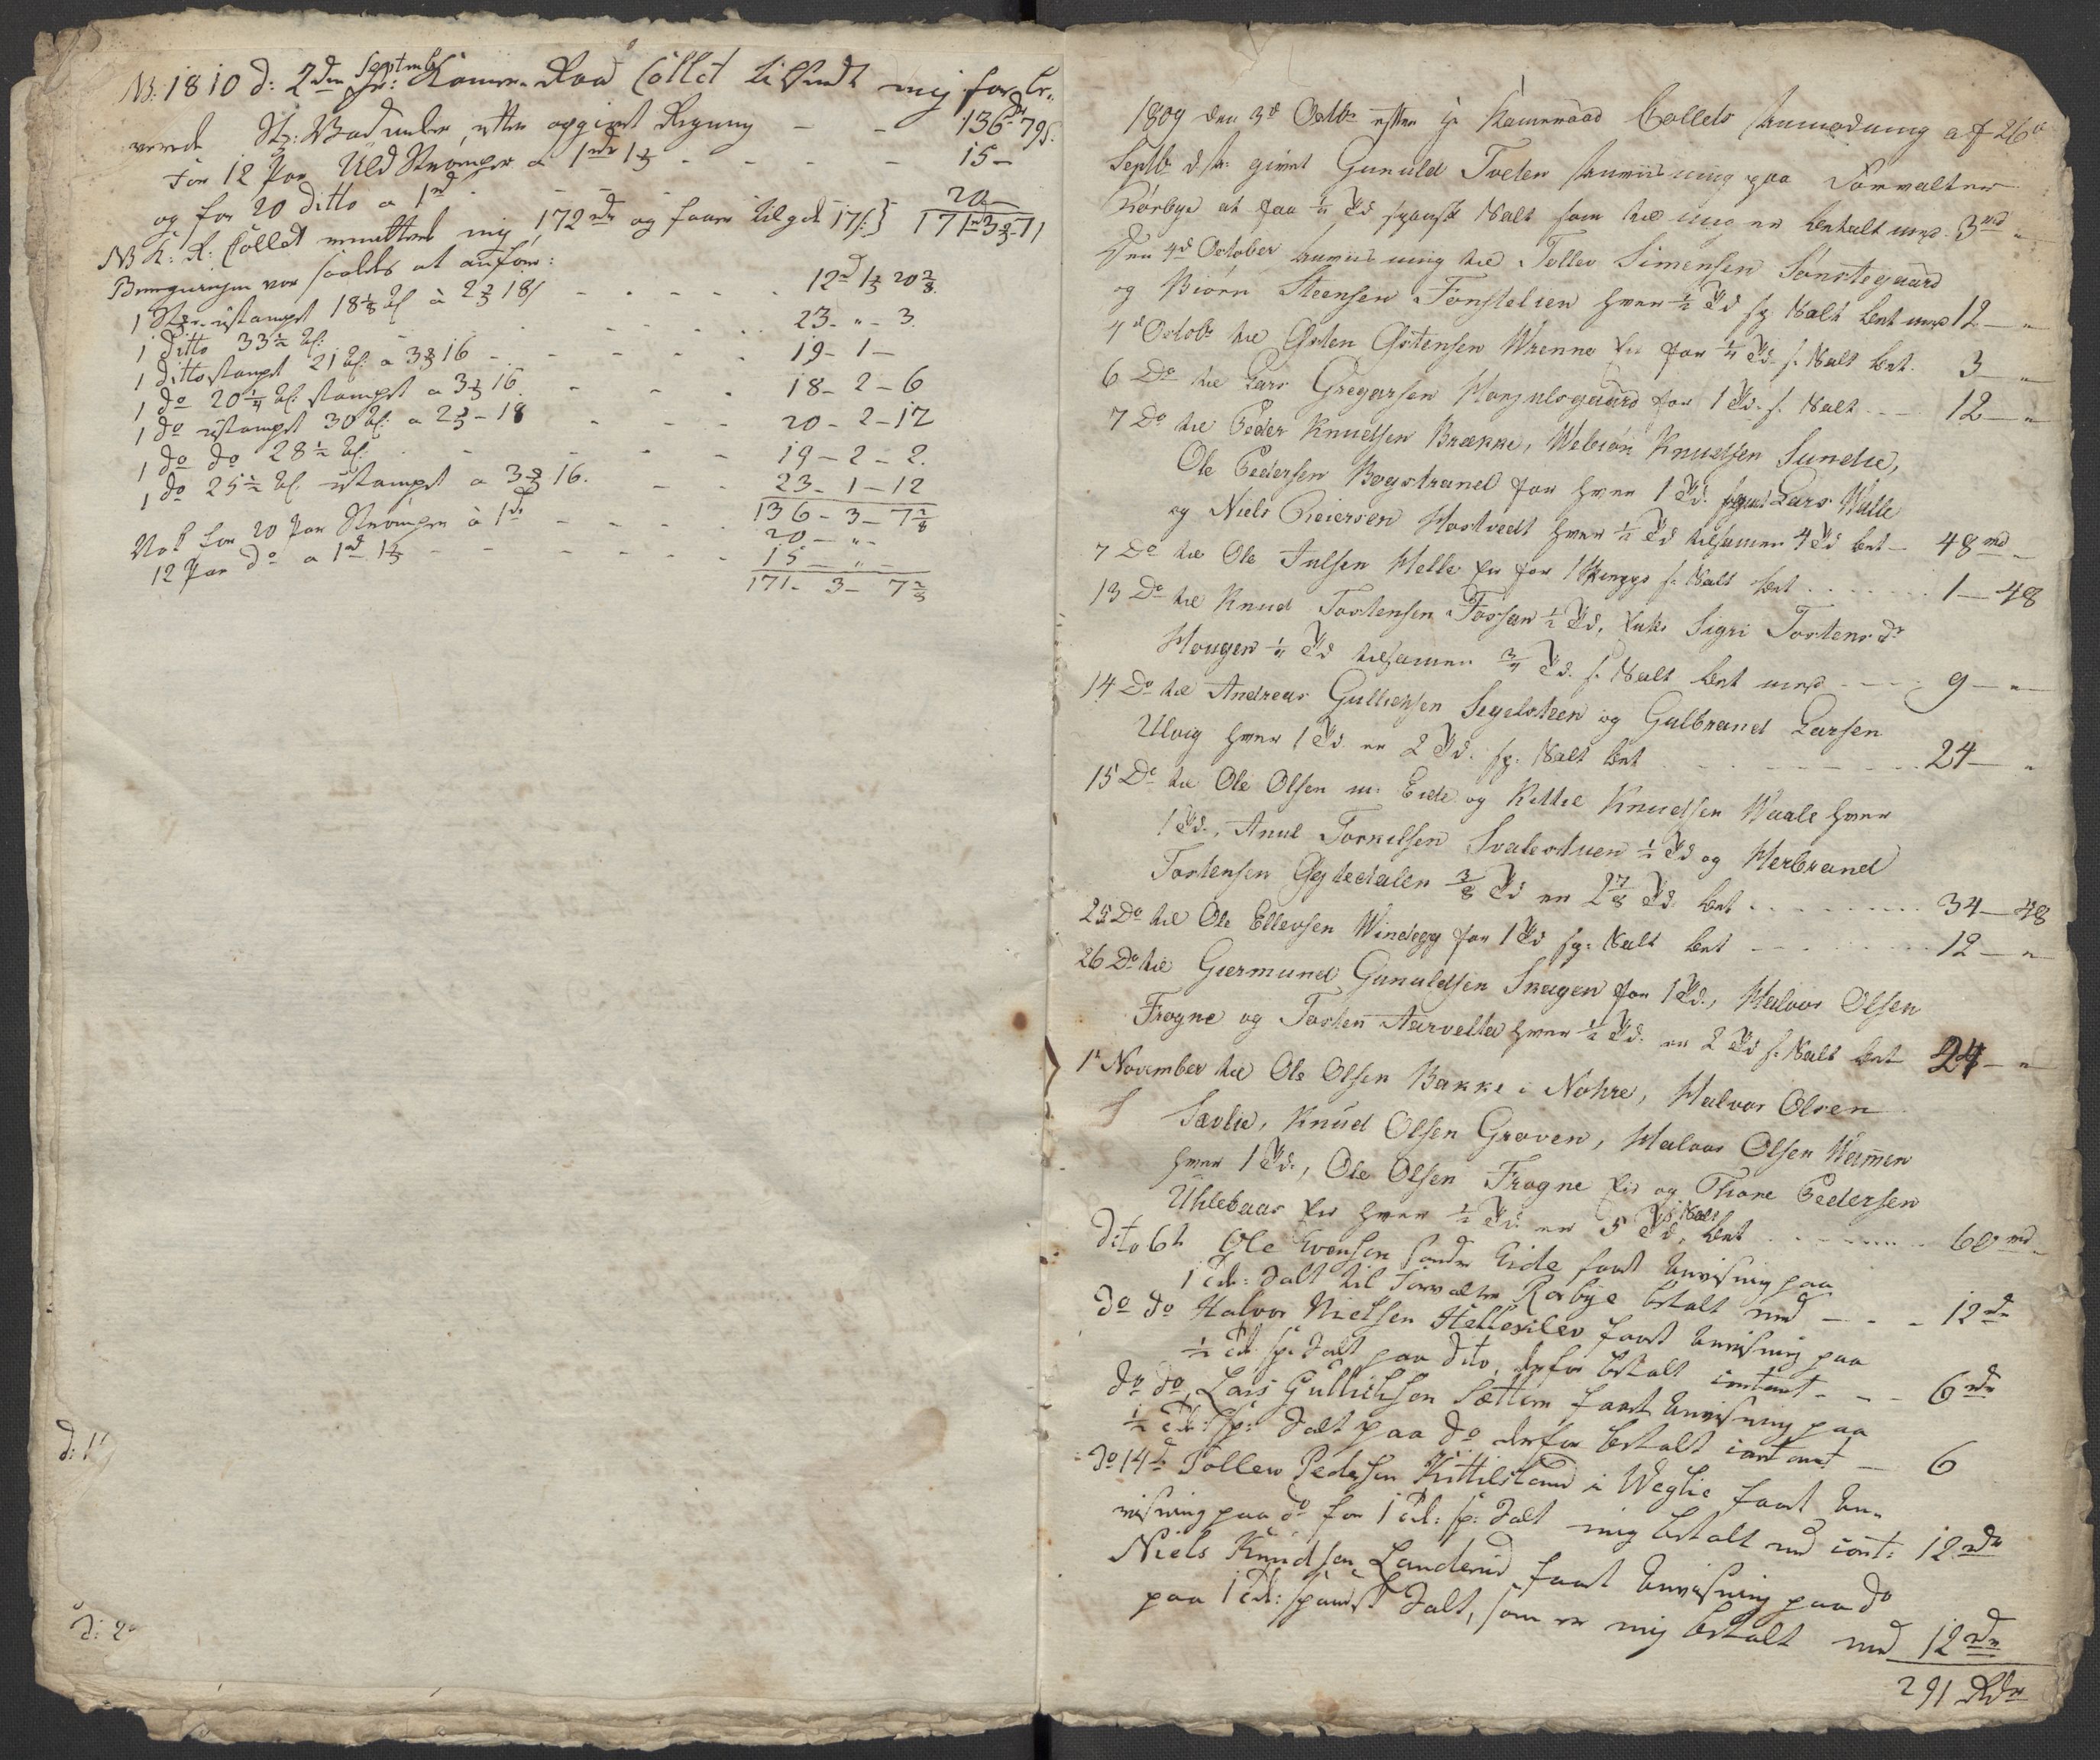 NB. 1810 d: 2den Septembr Hr: Kamer-Raad Collet tilsendt mig for le-
verede St: Vadmeler, efter opgivet Regning - - 136 rd 79 s.
For 12 Par Uld Strømper a 1rdr 1/3 - - - - 15 -
og for 20 ditto a 1rd - - - - 20 -
NB K: R: Collet remitteret mig 172 rdr og faar tilgode 17 s:} 171 - 3 - 71
Beregningen var saaledes at anføre:
1 St: ustampet 18 1/8 al a 2/3 18 s - - - - 12 rd 1/3 20 2/8.
1 Ditto 33 1/2 al: - - - - 23 - " - 3.
1 Ditto stampet 21 al: a 3/3 16 - - - - 19 - 1 -
1 do 20 1/4 al: stampet a 3/3 16 - - - 18 - 2 - 6
1 do ustampet 30 al: a 2/3 - 18 - - - 20 - 2 - 12
1 do do 28 1/2 al: - - - 19 - 2 - 2.
1 do 25 1/2 al: ustampet a 3/3 16. - - 23 - 1 - 12
136 - 3 - 7 2/8
Net for 20 Par Strømper a 1rd - - - 20 - " -
12 Par do a 1rd 1/3 - - - 15 - " -
171 - 3 - 7 2/8
d: 1
d: 2
1809 den 3d Octbr efter Hr Kamerraad Collets Anmodning af 26d
Septb d. A: givet Gunuld Tveten Anviisning paa Forvalter
Rørbye at faa 1/4 Td spansk Salt som til mig er betalt med 3 rd "
Den 4d October Anviisning til Tollev Simensen Sønstegaard
og Biørn Steensen Fønstelien hver 1/2 Td sp Salt bet med 12 - "
4d Octob til Østen Østensen Wrenne for 1/4 Td. s. Salt bet. 3 - "
6 Do til Lars Gregersen Honjulsgaard for 1 Td. s. Salt - - - 12 - "
7 Do til Peder Knudsen Brække, Webiøn Knudsen Lundie,
Ole Pedersen Bogstrand for hver 1 Td. Lars Walle
og Niels Reiersen Hostvedt hver 1/2 Td tilsamen 4 Td bet - 48 rd "
7 Do til Ole Julsen Helle for 1 Skieppe s. Salt bet . . . . 1 - 48
13 Do til Knud Tostensen Fossan 1/2 Td, Enke Sigri Tostens dr
Hougen 1/4 Td tilsamen 3/4 Td. s. Salt bet med - - - 9 - "
14 Do til Andreas Gullichsen Segelsteen og Gulbrand Larsen
Ulvig hver 1 Td. er 2 Td. sp. Salt bet - - - - 24 - "
15 Do til Ole Olsen m: Eide og Kittil Knudsen Waale hver
1 Td., Anul Torkilsen Svalestuen 1/2 Td og Herbrand
Tostensen Gystedalen 3/8 Td er 2 7/8 Td. bet . . . . 34 - 48
25 Do til Ole Ellevsen Windegg for 1 Td sp: Salt bet - - - - 12 - "
26 Do til Giermund Gunuldsen Skugen for 1 Td., Halvor Olsen
Frogne og Tosten Aarvelta hver 1/2 Td. er 2 Td s. Salt bet 24 - "
1t November til Ole Olsen Bakke i Nohre, Halvor Olsen
Sævlie, Knud Olsen Groven, Halvor Olsen Wammen
hver 1 Td., Ole Olsen Frogne og Thore Pedersen
Uhlebaas hver 1/2 Td. er 5 Td. s. Salt, bet . . . . 60 rd "
Dito 6t Ole Evensen søndr Eide faaet Anvisning paa
1 Td: Salt til Forvalter Rørbye betalt med - - - 12 rdr
do do Halvor Nielsen Hellesilev faaet Anvisning paa
1/2 Td: sp: Salt paa dito, derfor betalt contant - - - 6 rdr
do do Lars Gullichsen Sættem faaet Anvisning paa
1/2 Td: sp: Salt paa do derfor betalt contant - 6
do 14d Tollew Pedersen Kittilsland i Weglie faaet An-
visning paa do for 1 Td: sp: Salt mig betalt med cont: 12 rdr
Niels Knudsen Landerud faaet Anvisning paa do
paa 1 Td: spansk Salt, som er mig betalt med 12 rdr
291 Rdr